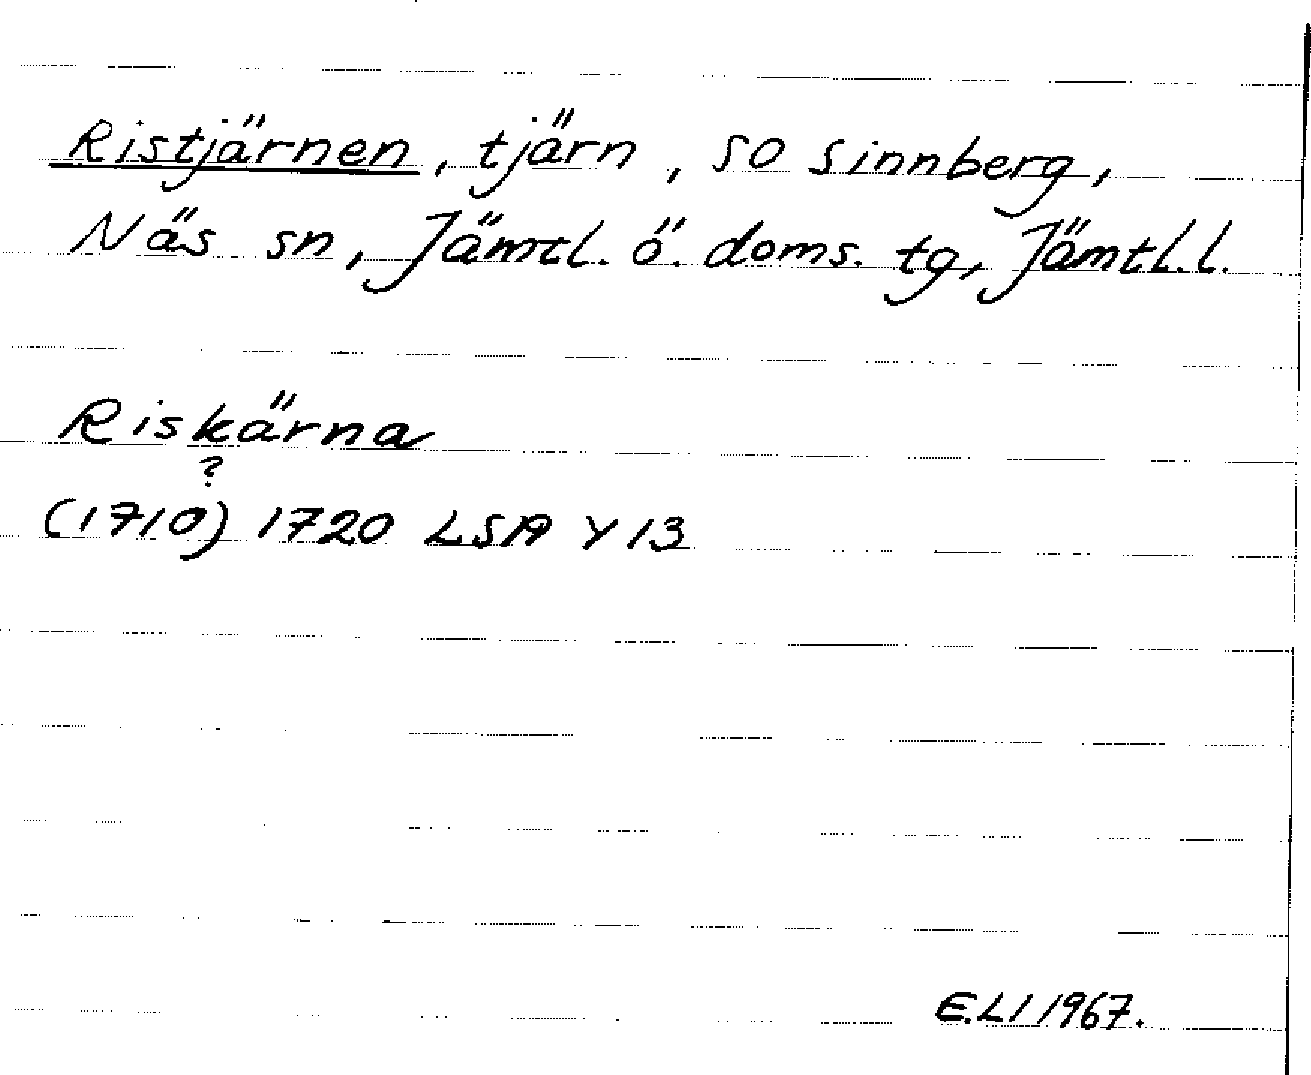 Ristjärnen, tjärn, SO Sinnberg,
Näs sn, Jämtl. ö. doms. tg, Jämtl. l.
Riskärna
?
(1710) 1720 LSA Y 13
E.LI 1967.